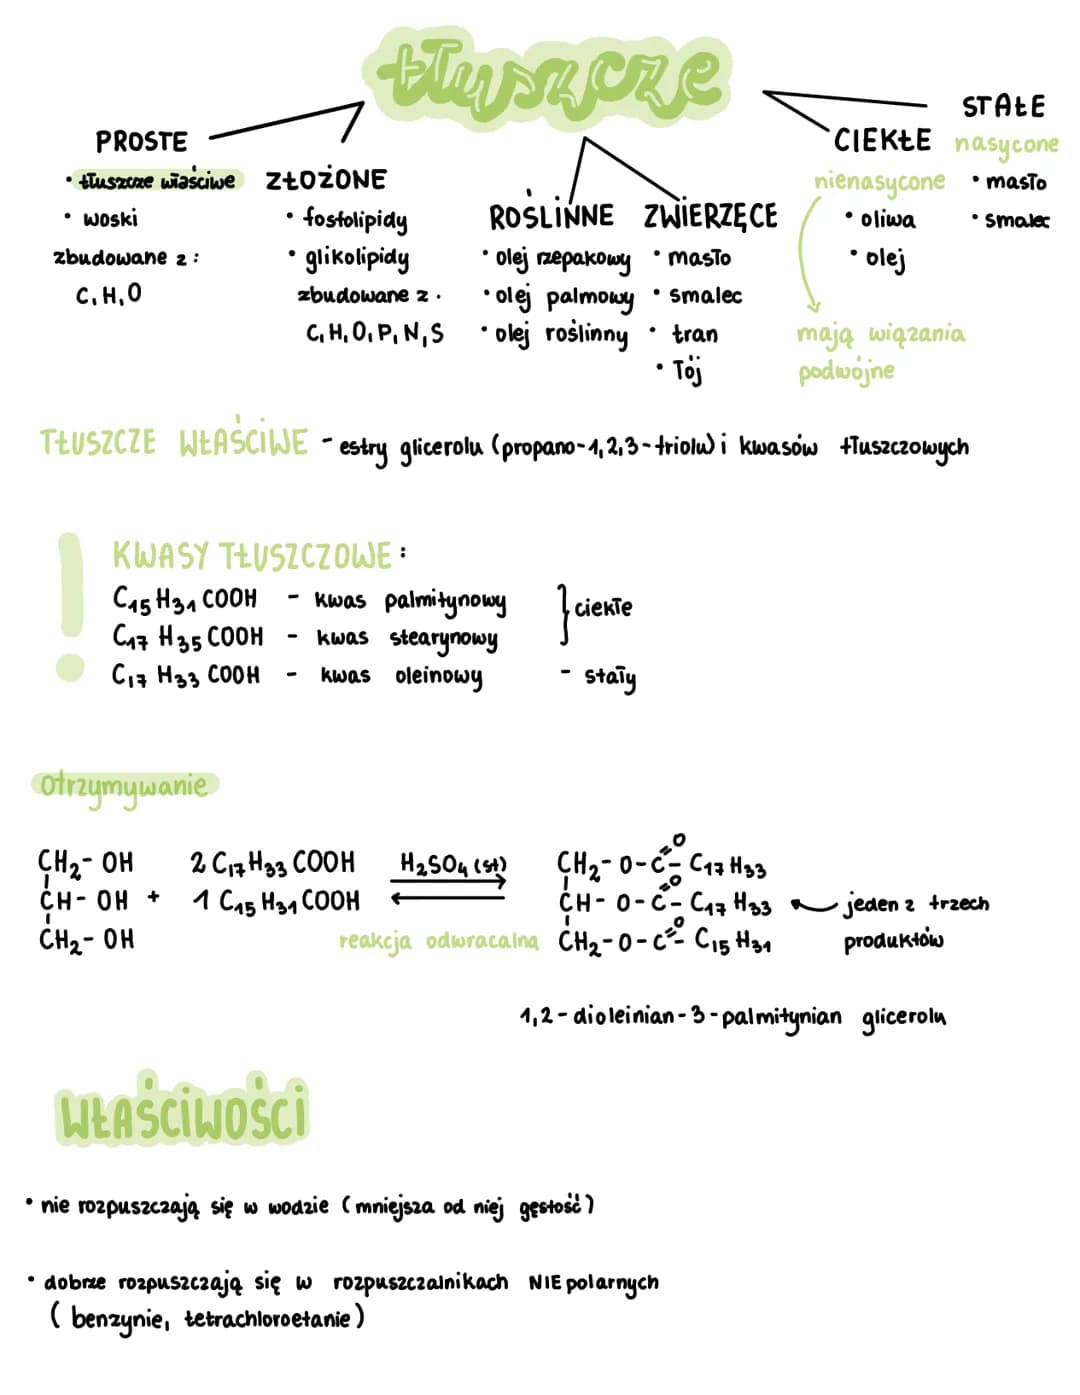 tłuszcze
PROSTE
• tłuszcze właściwe
• woski
zbudowane z:
C, H, O
ZŁOŻONE
• fosfolipidy
• glikolipidy
zbudowane z.
C, H, O, P, N, S
ROŚLINNE
• olej rzepakowy
• olej palmowy
• olej roślinny
ZWIERZĘCE
• masło
• smalec
• tran
• Tój
CIEKŁE
nienasycone
• oliwa
• olej
mają wiązania
podwójne
STAŁE
nasycone
• masło
• smalec
TŁUSZCZE WŁAŚCIWE - estry glicerolu (propano-1,2,3-triolu) i kwasów tłuszczowych
! KWASY TŁUSZCZOWE:
C15H31COOH - kwas palmitynowy
C17H35COOH - kwas stearynowy
} ciekłe
C17H33COOH - kwas oleinowy - stały
otrzymywanie
CH2-OH 2 C17H33COOH H2SO4 (st) CH2-O-C=O-C17H33
CH-OH + 1 C15H31COOH CH-O-C=O-C17H33 jeden z trzech
CH2-OH reakcja odwracalna CH2-O-C=O-C15H31 produktów
1,2-dioleinian-3-palmitynian glicerolu
WŁAŚCIWOŚCI
• nie rozpuszczają się w wodzie (mniejsza od niej gęstość)
• dobrze rozpuszczają się w rozpuszczalnikach NIEpolarnych
(benzynie, tetrachloroetanie)